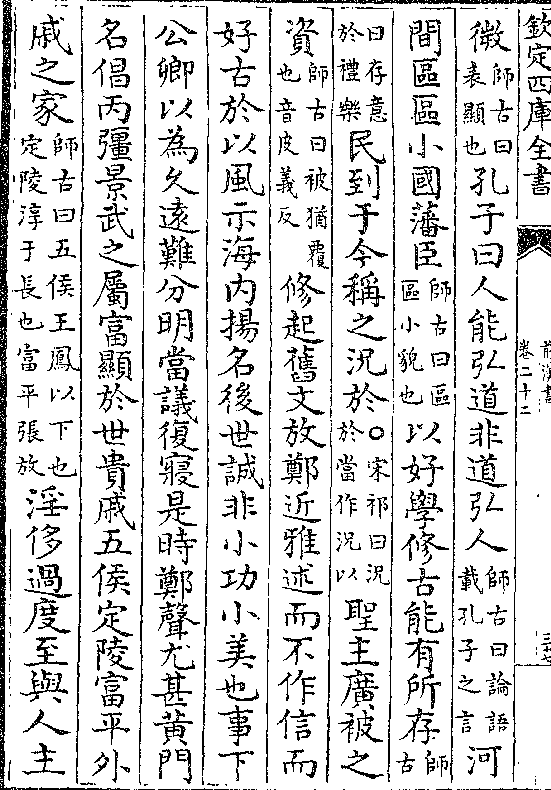 欽定四庫全書
前漢書
卷二十二
微師古曰表顯也孔子曰人能弘道非道弘人師古曰論語載孔子之言河
間區區小國藩臣師古曰區區小貌也以好學修古能有所存師古
曰存意於禮樂民到于今稱之況於○宋祁曰況於當作況以聖主廣被之
資師古曰被猶覆也音皮義反修起舊文放鄭近雅述而不作信而
好古於以風示海内揚名後世誠非小功小美也事下
公卿以為久遠難分明當議復寢是時鄭聲尤甚黄門
名倡丙彊景武之屬富顯於世貴戚五侯定陵富平外
戚之家師古曰五侯王鳳以下也定陵淳于長也富平張放淫侈過度至與人主